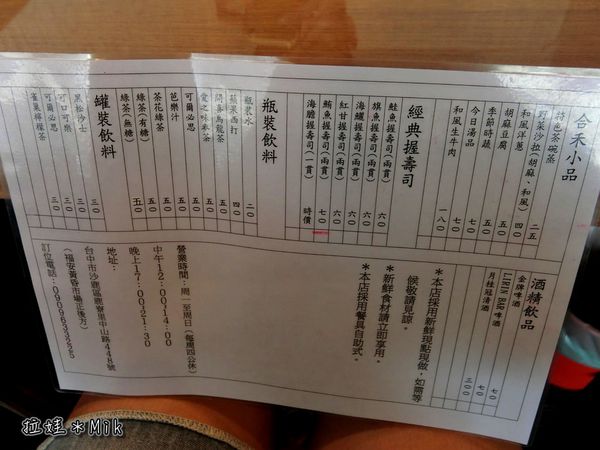 合禾小品
特色茶碗蒸 二五
野菜沙拉(胡麻、和風)
和風洋蔥 四0
胡麻豆腐 五0
季節時蔬 五0
今日湯品 七0
和風生牛肉 一八0
經典握壽司
鮭魚握壽司(兩貫) 六0
旗魚握壽司(兩貫) 六0
海鱺握壽司(兩貫) 六0
紅甘握壽司(兩貫) 六0
鮪魚握壽司(兩貫) 七0
海膽握壽司(一貫) 時價
瓶裝飲料
瓶裝水 二0
蘋果西打 四0
開喜烏龍茶 五0
愛之味麥茶 五0
可爾必思 五0
芭樂汁 五0
茶花綠茶 五0
綠茶(有糖)
綠茶(無糖) 五0
罐裝飲料
黑松沙士 三0
可口可樂 三0
可爾必思 三0
雀巢檸檬茶 三0
酒精飲品
金牌啤酒 七0
LIRIN BAR 啤酒 七0
月桂冠清酒 三00
*本店採用新鮮現點現做，如需等
候敬請見諒。
*新鮮食材請立即享用。
*本店採用餐具自助式。
營業時間：周一至周日(每周四公休)
中午12:00-14:00
晚上17:00-21:30
地址：
台中市沙鹿區鹿寮里中山路448號
(福安黃昏市場正後方)
訂位電話：09096332325
拉娃＊Mik